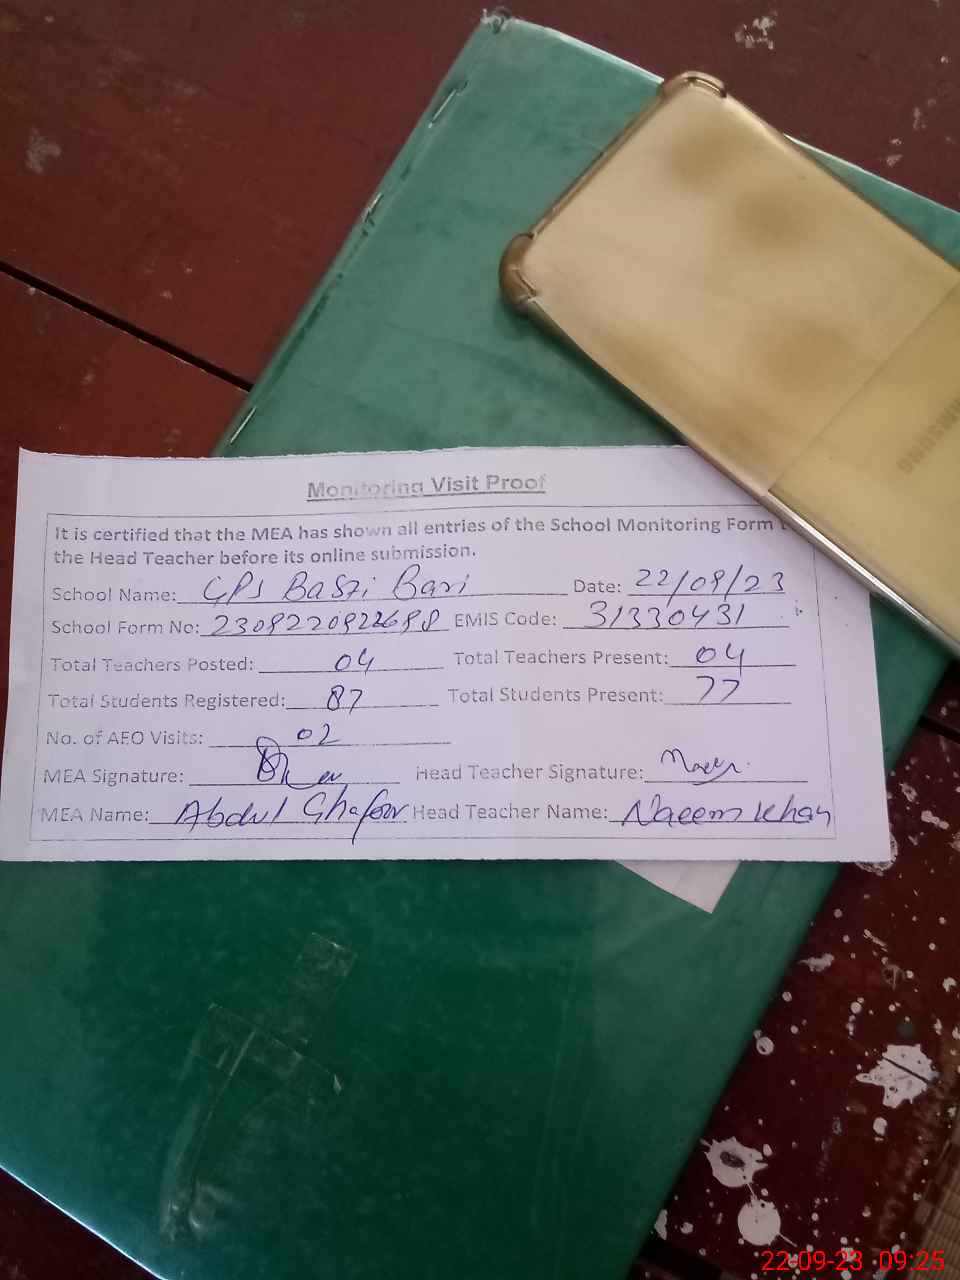 Monitoring Visit Proof
It is certified that the MEA has shown all entries of the School Monitoring Form
the Head Teacher before its online submission.
School Name: GPS Basti Bari Date: 22/09/23
School Form No: EMIS Code: 31330431
Total Teachers Posted: 04 Total Teachers Present: 04
Total Students Registered: 87 Total Students Present: 77
No. of AEO Visits: 02
MEA Signature: Head Teacher Signature:
MEA Name: Abdul Ghafoor Head Teacher Name: Naeem Khan
SAMSUNG
22-09-23 09:25